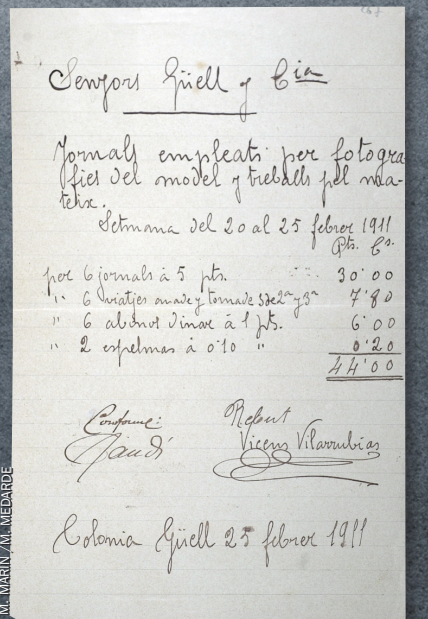 Senyors Güell y Cia
Jornals empleats per fotogra-
fies del model y treballs pel ma-
teix.
Setmana del 20 al 25 febrer 1911
Pts. Cs.
per 6 jornals á 5 pts. 30'00
" 6 viatjes anade y tornade 3 de 2ª y 3ª 7'80
" 6 abonos dinar á 1 pts. 6'00
" 2 espelmas á 0'10 " 0'20
44'00
Conforme: Rebut
Gaudí Vicens Vilarrubias
Colonia Güell 25 febrer 1911
M. MARIN / M. MEDARDE